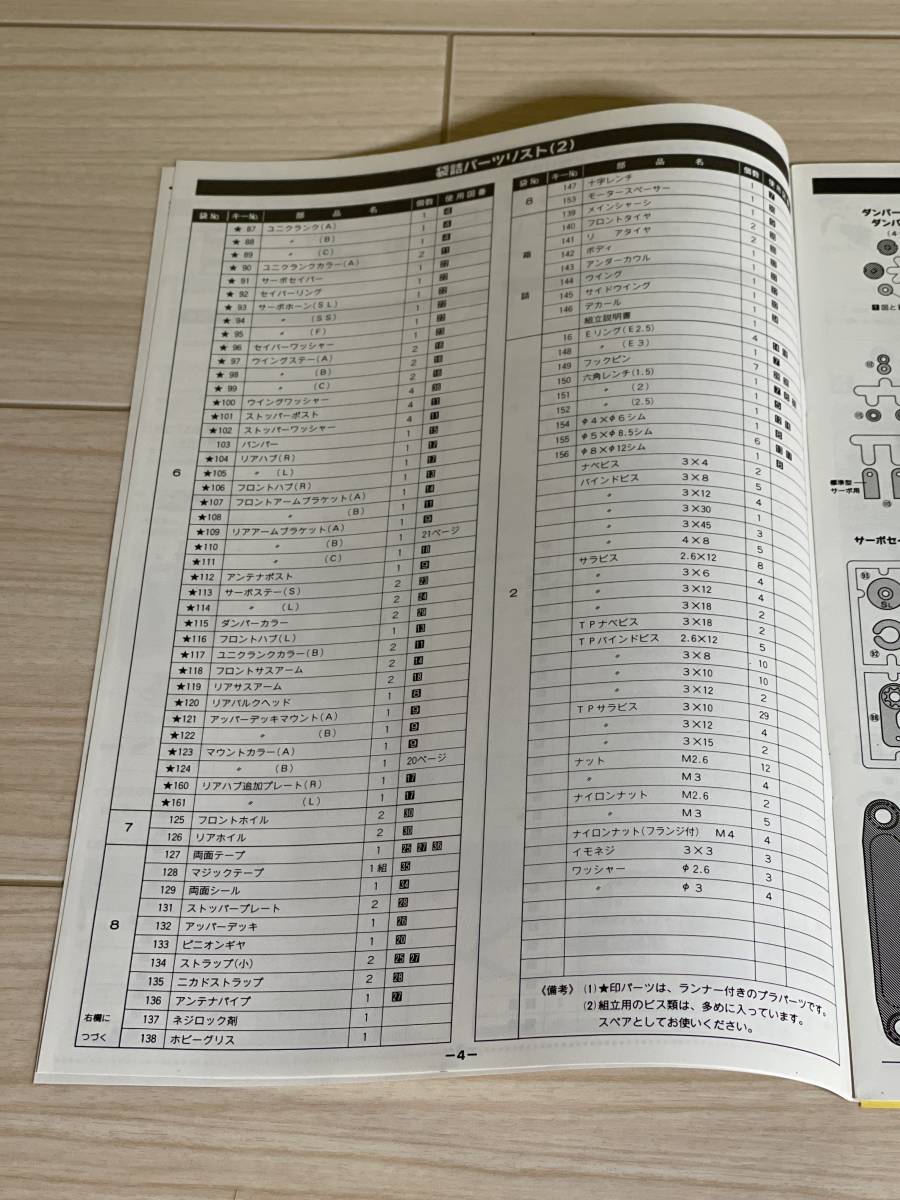 袋詰パーツリスト(2)
袋No キーNo 部品名 個数 使用図番
6
★ 87 ユニクランク(A) 1 4
★ 88 〃 (B) 1 4
★ 89 〃 (C) 2 11
★ 90 ユニクランクカラー(A) 1
★ 91 サーボセイバー 1
★ 92 セイバーリング 1
★ 93 サーボホーン(SL) 1
★ 94 〃 (SS) 1
★ 95 〃 (F) 1
★ 96 セイバーワッシャー
★ 97 ウイングステー(A) 2
★ 98 〃 (B) 2
★ 99 〃 (C) 2
★100 ウイングワッシャー 4
★101 ストッパーポスト 4 11
★102 ストッパーワッシャー 4 11
103 バンパー 1 15
★104 リアハブ(R) 1 17
★105 〃 (L) 1 17
★106 フロントハブ(R) 1 13
★107 フロントアームブラケット(A) 1 14
★108 〃 (B) 1 11
★109 リアアームブラケット(A) 1 9
★110 〃 (B) 1 21ページ
★111 〃 (C) 1 10
★112 アンテナポスト 1 9
★113 サーボステー(S) 2 23
★114 〃 (L) 2 24
★115 ダンパーカラー 2 29
★116 フロントハブ(L) 1 13
★117 ユニクランクカラー(B) 2 11
★118 フロントサスアーム 2 14
★119 リアサスアーム 2 18
★120 リアバルクヘッド 1 8
★121 アッパーデッキマウント(A) 1 9
★122 〃 (B) 1 9
★123 マウントカラー(A) 1 9
★124 〃 (B) 1 20ページ
★160 リアハブ追加プレート(R) 1 17
★161 〃 (L) 1 17
7
125 フロントホイル 2 30
126 リアホイル 2 30
8
127 両面テープ 1 25 27 36
128 マジックテープ 1組 35
129 両面シール 1 34
131 ストッパープレート 2 28
132 アッパーデッキ 1 26
133 ピニオンギヤ 1 20
134 ストラップ(小) 2 25 27
135 ニカドストラップ 2 28
136 アンテナパイプ 1 27
137 ネジロック剤 1
138 ホビーグリス 1
右欄につづく
袋No キーNo 部品名 個数
8
147 十字レンチ 1
153 モータースペーサー 1
箱詰
139 メインシャーシ 1
140 フロントタイヤ 2
141 リアタイヤ 2
142 ボディ 1
143 アンダーカウル 1
144 ウイング 1
145 サイドウイング 1
146 デカール 1
組立説明書 1
2
16 Eリング(E2.5) 4
148 〃 (E3) 1
149 フックピン 7
150 六角レンチ(1.5) 1
151 〃 (2) 1
152 〃 (2.5) 1
154 φ4×φ6シム
155 φ5×φ8.5シム 6
156 φ8×φ12シム 1
ナベビス 3×4 2
バインドビス 3×8 5
〃 3×12 4
〃 3×30 1
〃 3×45 3
〃 4×8 5
サラビス 2.6×12 8
〃 3×6 4
〃 3×12 4
〃 3×18 2
TPナベビス 3×18 2
TPバインドビス 2.6×12 5
〃 3×8 10
〃 3×10 10
〃 3×12 2
TPサラビス 3×10 29
〃 3×12 4
〃 3×15 2
ナット M2.6 12
〃 M3 4
ナイロンナット M2.6 2
〃 M3 5
ナイロンナット(フランジ付) M4 4
イモネジ 3×3 3
ワッシャー φ2.6 3
〃 φ3 4
《備考》 (1)★印パーツは、ランナー付きのプラパーツです。
(2)組立用のビス類は、多めに入っています。
スペアとしてお使いください。
−4−
ダンパー
ダンパ
標準型
サーボ用
サーボセー
93
SL
92